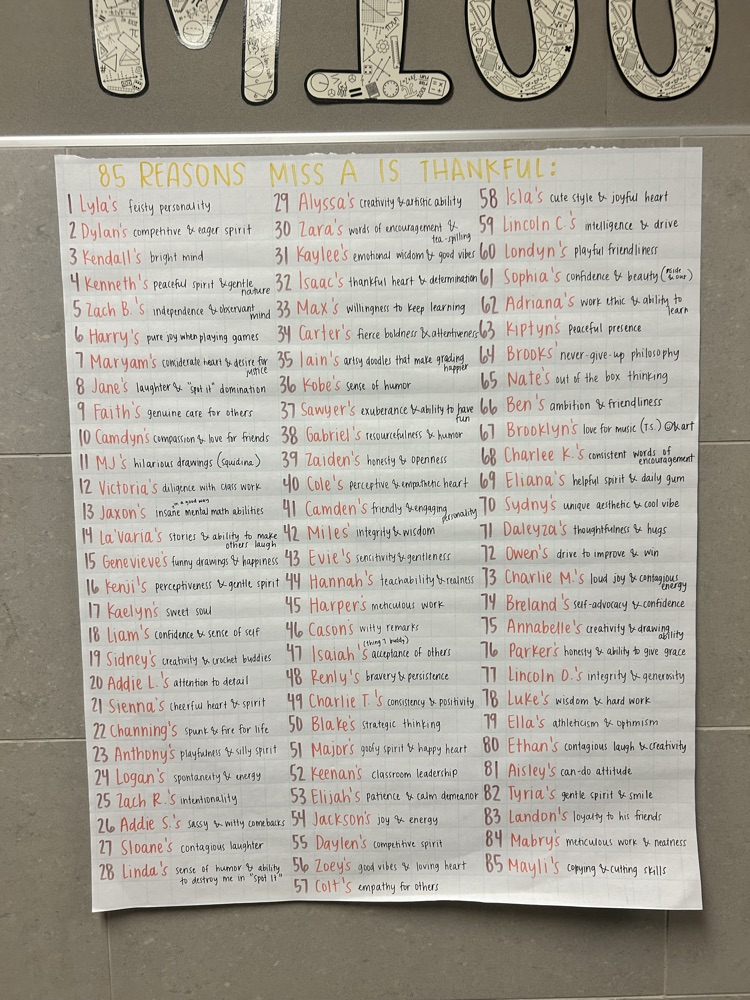 MIGO
85 REASONS MISS A IS THANKFUL:
1 Lyla's feisty personality
2 Dylan's competitive & eager spirit
3 Kendall's bright mind
4 Kenneth's peaceful spirit & gentle nature
5 Zach B.'s independence & observant mind
6 Harry's pure joy when playing games
7 Maryam's considerate heart & desire for justice
8 Jane's laughter & "spot it" domination
9 Faith's genuine care for others
10 Camdyn's compassion & love for friends
11 MJ's hilarious drawings (squidina)
12 Victoria's diligence with class work
13 Jaxon's insane in a good way mental math abilities
14 La'Varia's stories & ability to make others laugh
15 Genevieve's funny drawings & happiness
16 Kenji's perceptiveness & gentle spirit
17 Kaelyn's sweet soul
18 Liam's confidence & sense of self
19 Sidney's creativity & crochet buddies
20 Addie L.'s attention to detail
21 Sienna's cheerful heart & spirit
22 Channing's spunk & fire for life
23 Anthony's playfulness & silly spirit
24 Logan's spontaneity & energy
25 Zach R.'s intentionality
26 Addie S.'s sassy & witty comebacks
27 Sloane's contagious laughter
28 Linda's sense of humor & ability to destroy me in "spot it"
29 Alyssa's creativity & artistic ability
30 Zara's words of encouragement & tea-spilling
31 Kaylee's emotional wisdom & good vibes
32 Isaac's thankful heart & determination
33 Max's willingness to keep learning
34 Carter's fierce boldness & attentiveness
35 Iain's artsy doodles that make grading happier
36 Kobe's sense of humor
37 Sawyer's exuberance & ability to have fun
38 Gabriel's resourcefulness & humor
39 Zaiden's honesty & openness
40 Cole's perceptive & empathetic heart
41 Camden's friendly & engaging personality
42 Miles' integrity & wisdom
43 Evie's sencitivity & gentleness
44 Hannah's teachability & realness
45 Harper's meticulous work
46 Cason's witty remarks
47 Isaiah's (thing 2 buddy) acceptance of others
48 Renly's bravery & persistence
49 Charlie T.'s consistency & positivity
50 Blake's strategic thinking
51 Major's goofy spirit & happy heart
52 Keenan's classroom leadership
53 Elijah's patience & calm demeanor
54 Jackson's joy & energy
55 Daylen's competitive spirit
56 Zoey's good vibes & loving heart
57 Colt's empathy for others
58 Isla's cute style & joyful heart
59 Lincoln C.'s intelligence & drive
60 Londyn's playful friendliness
61 Sophia's confidence & beauty (inside & out)
62 Adriana's work ethic & ability to learn
63 Kiptyn's peaceful presence
64 Brooks' never-give-up philosophy
65 Nate's out of the box thinking
66 Ben's ambition & friendliness
67 Brooklyn's love for music (T.S.) ☺ & art
68 Charlee K.'s consistent words of encouragement
69 Eliana's helpful spirit & daily gum
70 Sydny's unique aesthetic & cool vibe
71 Daleyza's thoughtfulness & hugs
72 Owen's drive to improve & win
73 Charlie M.'s loud joy & contagious energy
74 Breland's self-advocacy & confidence
75 Annabelle's creativity & drawing ability
76 Parker's honesty & ability to give grace
77 Lincoln D.'s integrity & generosity
78 Luke's wisdom & hard work
79 Ella's athleticism & optimism
80 Ethan's contagious laugh & creativity
81 Aisley's can-do attitude
82 Tyria's gentle spirit & smile
83 Landon's loyalty to his friends
84 Mabry's meticulous work & neatness
85 Mayli's copying & cutting skills